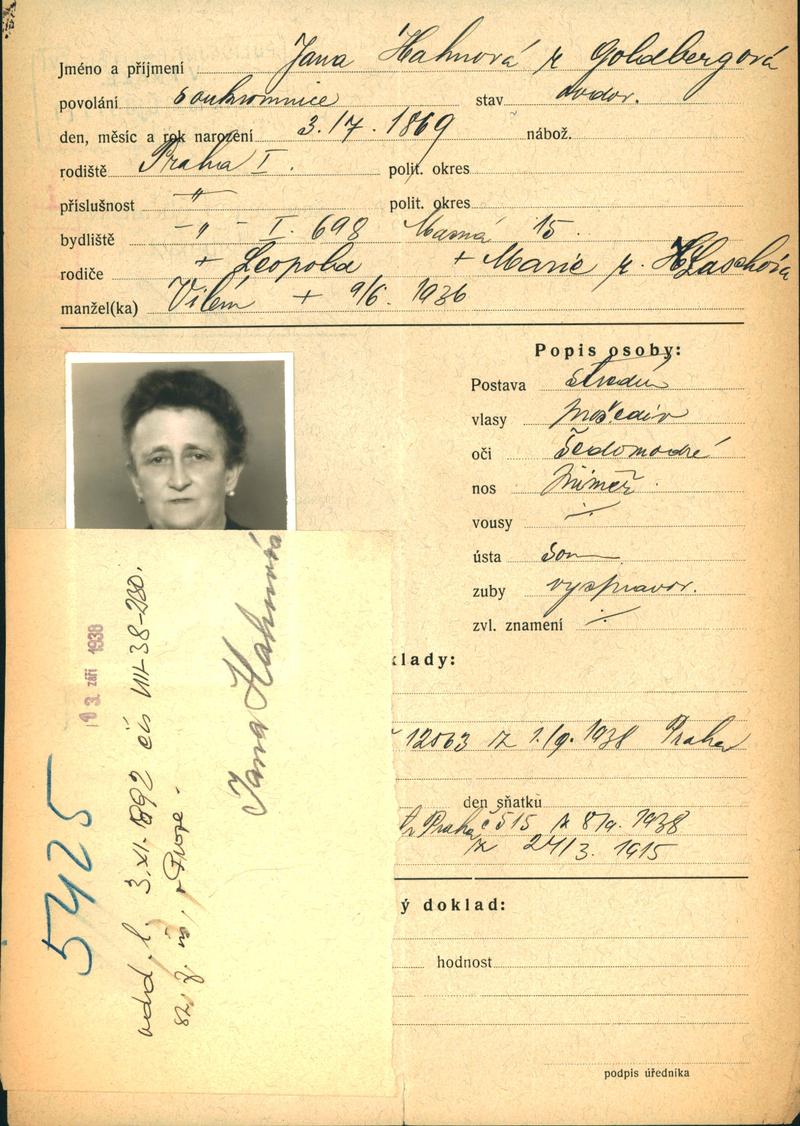 Jméno a příjmení Jana Hahnová r Goldbergová
povolání soukromnice stav vdov.
den, měsíc a rok narození 3./7. 1869 nábož.
rodiště Praha I. polit. okres
příslušnost -"- polit. okres
bydliště -"- I. 698 Masná 15.
rodiče + Leopold + Marie r.
manžel(ka) Vilém + 9/6. 1936
Popis osoby:
Postava střední
vlasy prošediv
oči šedomodré
nos přiměř.
vousy ⁒
ústa
zuby vyspravov.
zvl. znamení ⁒
klady:
12563 z 1./9. 1938 Praha
den sňatku
Praha č 515 z 8/9. 1938
z 24/3. 1915
ý doklad:
hodnost
podpis úředníka
13. září 1938
3. XI. 1892 čís VIII-38-280.
Jana Hahnová
5425